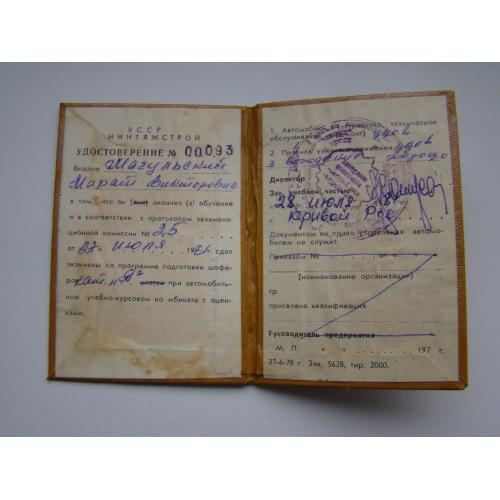 УССР
МИНТЯЖСТРОЙ
УДОСТОВЕРЕНИЕ № 00093
Выдано Шагульский
Марат Викторович
в том, что он (она) окончил (а) обучение
и в соответствии с протоколом экзамена-
ционной комиссии № 25
от 27 июля 198 г. сдал
экзамены по программе подготовки шофе-
ра кат. „А" класса при автомобиль-
ном учебно-курсовом комбинате с оцен-
ками:
1. Автомобиль (устройство, техническое
обслуживание, ремонт) удов
2. Правила уличного движения удов
3 Вождение хорошо
Директор
Зав. учебной частью
28 июля 198
г. Кривой Рог
Документом на право управления автомо-
билем не служит.
Приказом № от «
(наименование организации)
гр.
присвоена квалификация
Руководитель предприятия
М. П. « » 197 г.
27-6-78 г. Зак. 5628, тир. 2000.